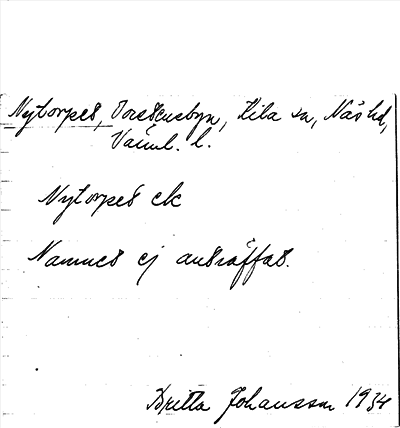 Nytorpet, Torstensbyn, Kila sn, Näs hd,
Värml. l.
Nytorpet ek
Namnet ej anträffat.
Britta Johansson 1934